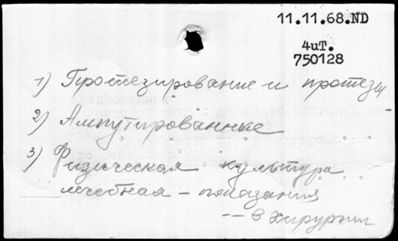 11.11.68.ND
4иТ.
750128
1) Протезирование и протезы
2) Ампутированные
3) Физическая культура
лечебная - показания
-- в хирургии